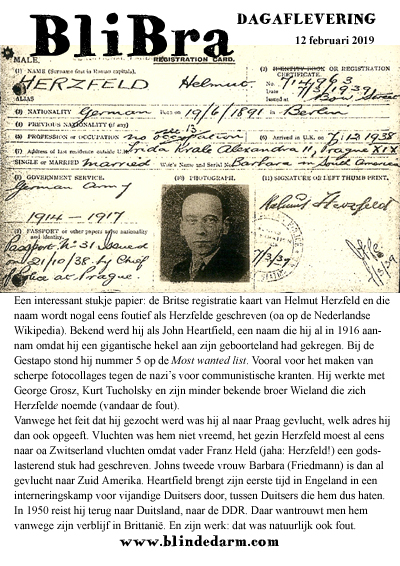 BliBra
DAGAFLEVERING
12 februari 2019
MALE.
REGISTRATION CARD.
(1) NAME (Surname first in Roman capitals).
HERZFELD Helmut.
ALIAS
(2) IDENTITY BOOK OR REGISTRATION
CERTIFICATE.
No. 714963
Date 7/3/1939
Issued at Bow Street
(3) NATIONALITY German Born on 19/6/1891 in Berlin
(4) PREVIOUS NATIONALITY (if any)
(5) PROFESSION or OCCUPATION no occupation
(6) Arrived in U.K. on 7.12.1938
(7) Address of last residence outside U.K. Frida Kvale Alexandra 11, Prague XIX
SINGLE or MARRIED Married Wife's Name and Barbara in South America
(8) GOVERNMENT SERVICE.
German Army
1914 – 1917
(9) PASSPORT or other papers as to nationality
and identity.
Passport No 31 Issued
on 21/10/38 by Chief
Police at Prague.
(10) PHOTOGRAPH.
(11) SIGNATURE OR LEFT THUMB PRINT.
Helmut Herzfeld
7/3/39
Een interessant stukje papier: de Britse registratie kaart van Helmut Herzfeld en die
naam wordt nogal eens foutief als Herzfelde geschreven (oa op de Nederlandse
Wikipedia). Bekend werd hij als John Heartfield, een naam die hij al in 1916 aan-
nam omdat hij een gigantische hekel aan zijn geboorteland had gekregen. Bij de
Gestapo stond hij nummer 5 op de Most wanted list. Vooral voor het maken van
scherpe fotocollages tegen de nazi's voor communistische kranten. Hij werkte met
George Grosz, Kurt Tucholsky en zijn minder bekende broer Wieland die zich
Herzfelde noemde (vandaar de fout).
Vanwege het feit dat hij gezocht werd was hij al naar Praag gevlucht, welk adres hij
dan ook opgeeft. Vluchten was hem niet vreemd, het gezin Herzfeld moest al eens
naar oa Zwitserland vluchten omdat vader Franz Held (jaha: Herzfeld!) een gods-
lasterend stuk had geschreven. Johns tweede vrouw Barbara (Friedmann) is dan al
gevlucht naar Zuid Amerika. Heartfield brengt zijn eerste tijd in Engeland in een
interneringskamp voor vijandige Duitsers door, tussen Duitsers die hem dus haten.
In 1950 reist hij terug naar Duitsland, naar de DDR. Daar wantrouwt men hem
vanwege zijn verblijf in Brittanië. En zijn werk: dat was natuurlijk ook fout.
www.blindedarm.com